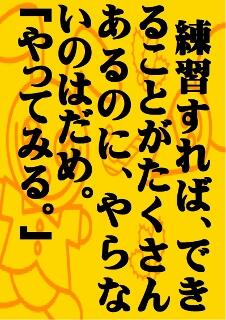 練習すれば、でき
ることがたくさん
あるのに、やらな
いのはだめ。
『やってみる。』